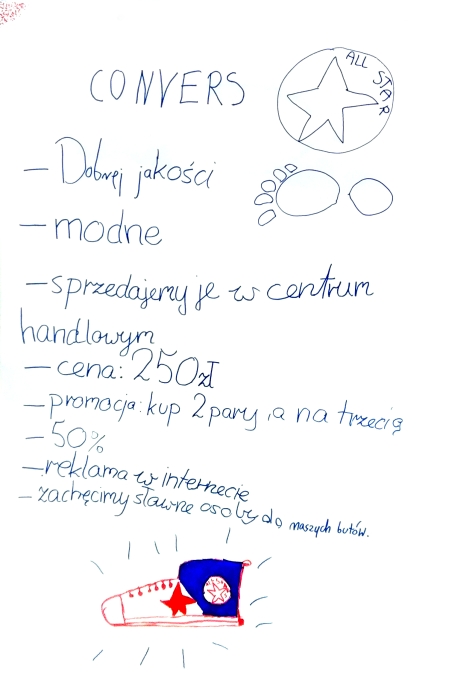 CONVERS
ALL STAR
– Dobrej jakości
– modne
– sprzedajemy je w centrum
handlowym
– cena: 250zł
– promocja: kup 2 pary, a na trzecią
– 50%
– reklama w internecie
– zachęcimy sławne osoby do naszych butów.